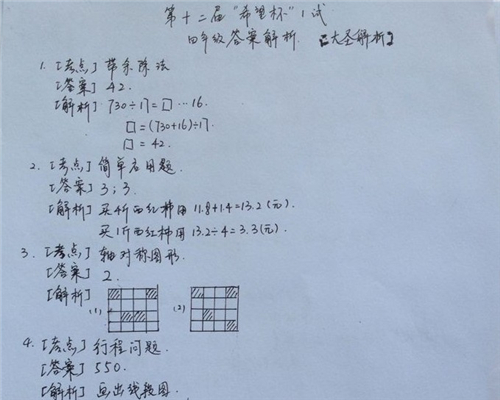 第十二届"希望杯"1试
四年级答案解析. 【大圣解析】
1. [考点] 带余除法
[答案] 42.
[解析] 730÷17=□…16.
□=(730+16)÷17.
□=42.
2. [考点] 简单应用题.
[答案] 3;3.
[解析] 买4斤西红柿用 11.8+1.4=13.2(元).
买1斤西红柿用 13.2÷4=3.3(元).
3. [考点] 轴对称图形.
[答案] 2.
[解析]
(1) (2)
4. [考点] 行程问题.
[答案] 550.
[解析] 画出线段图.